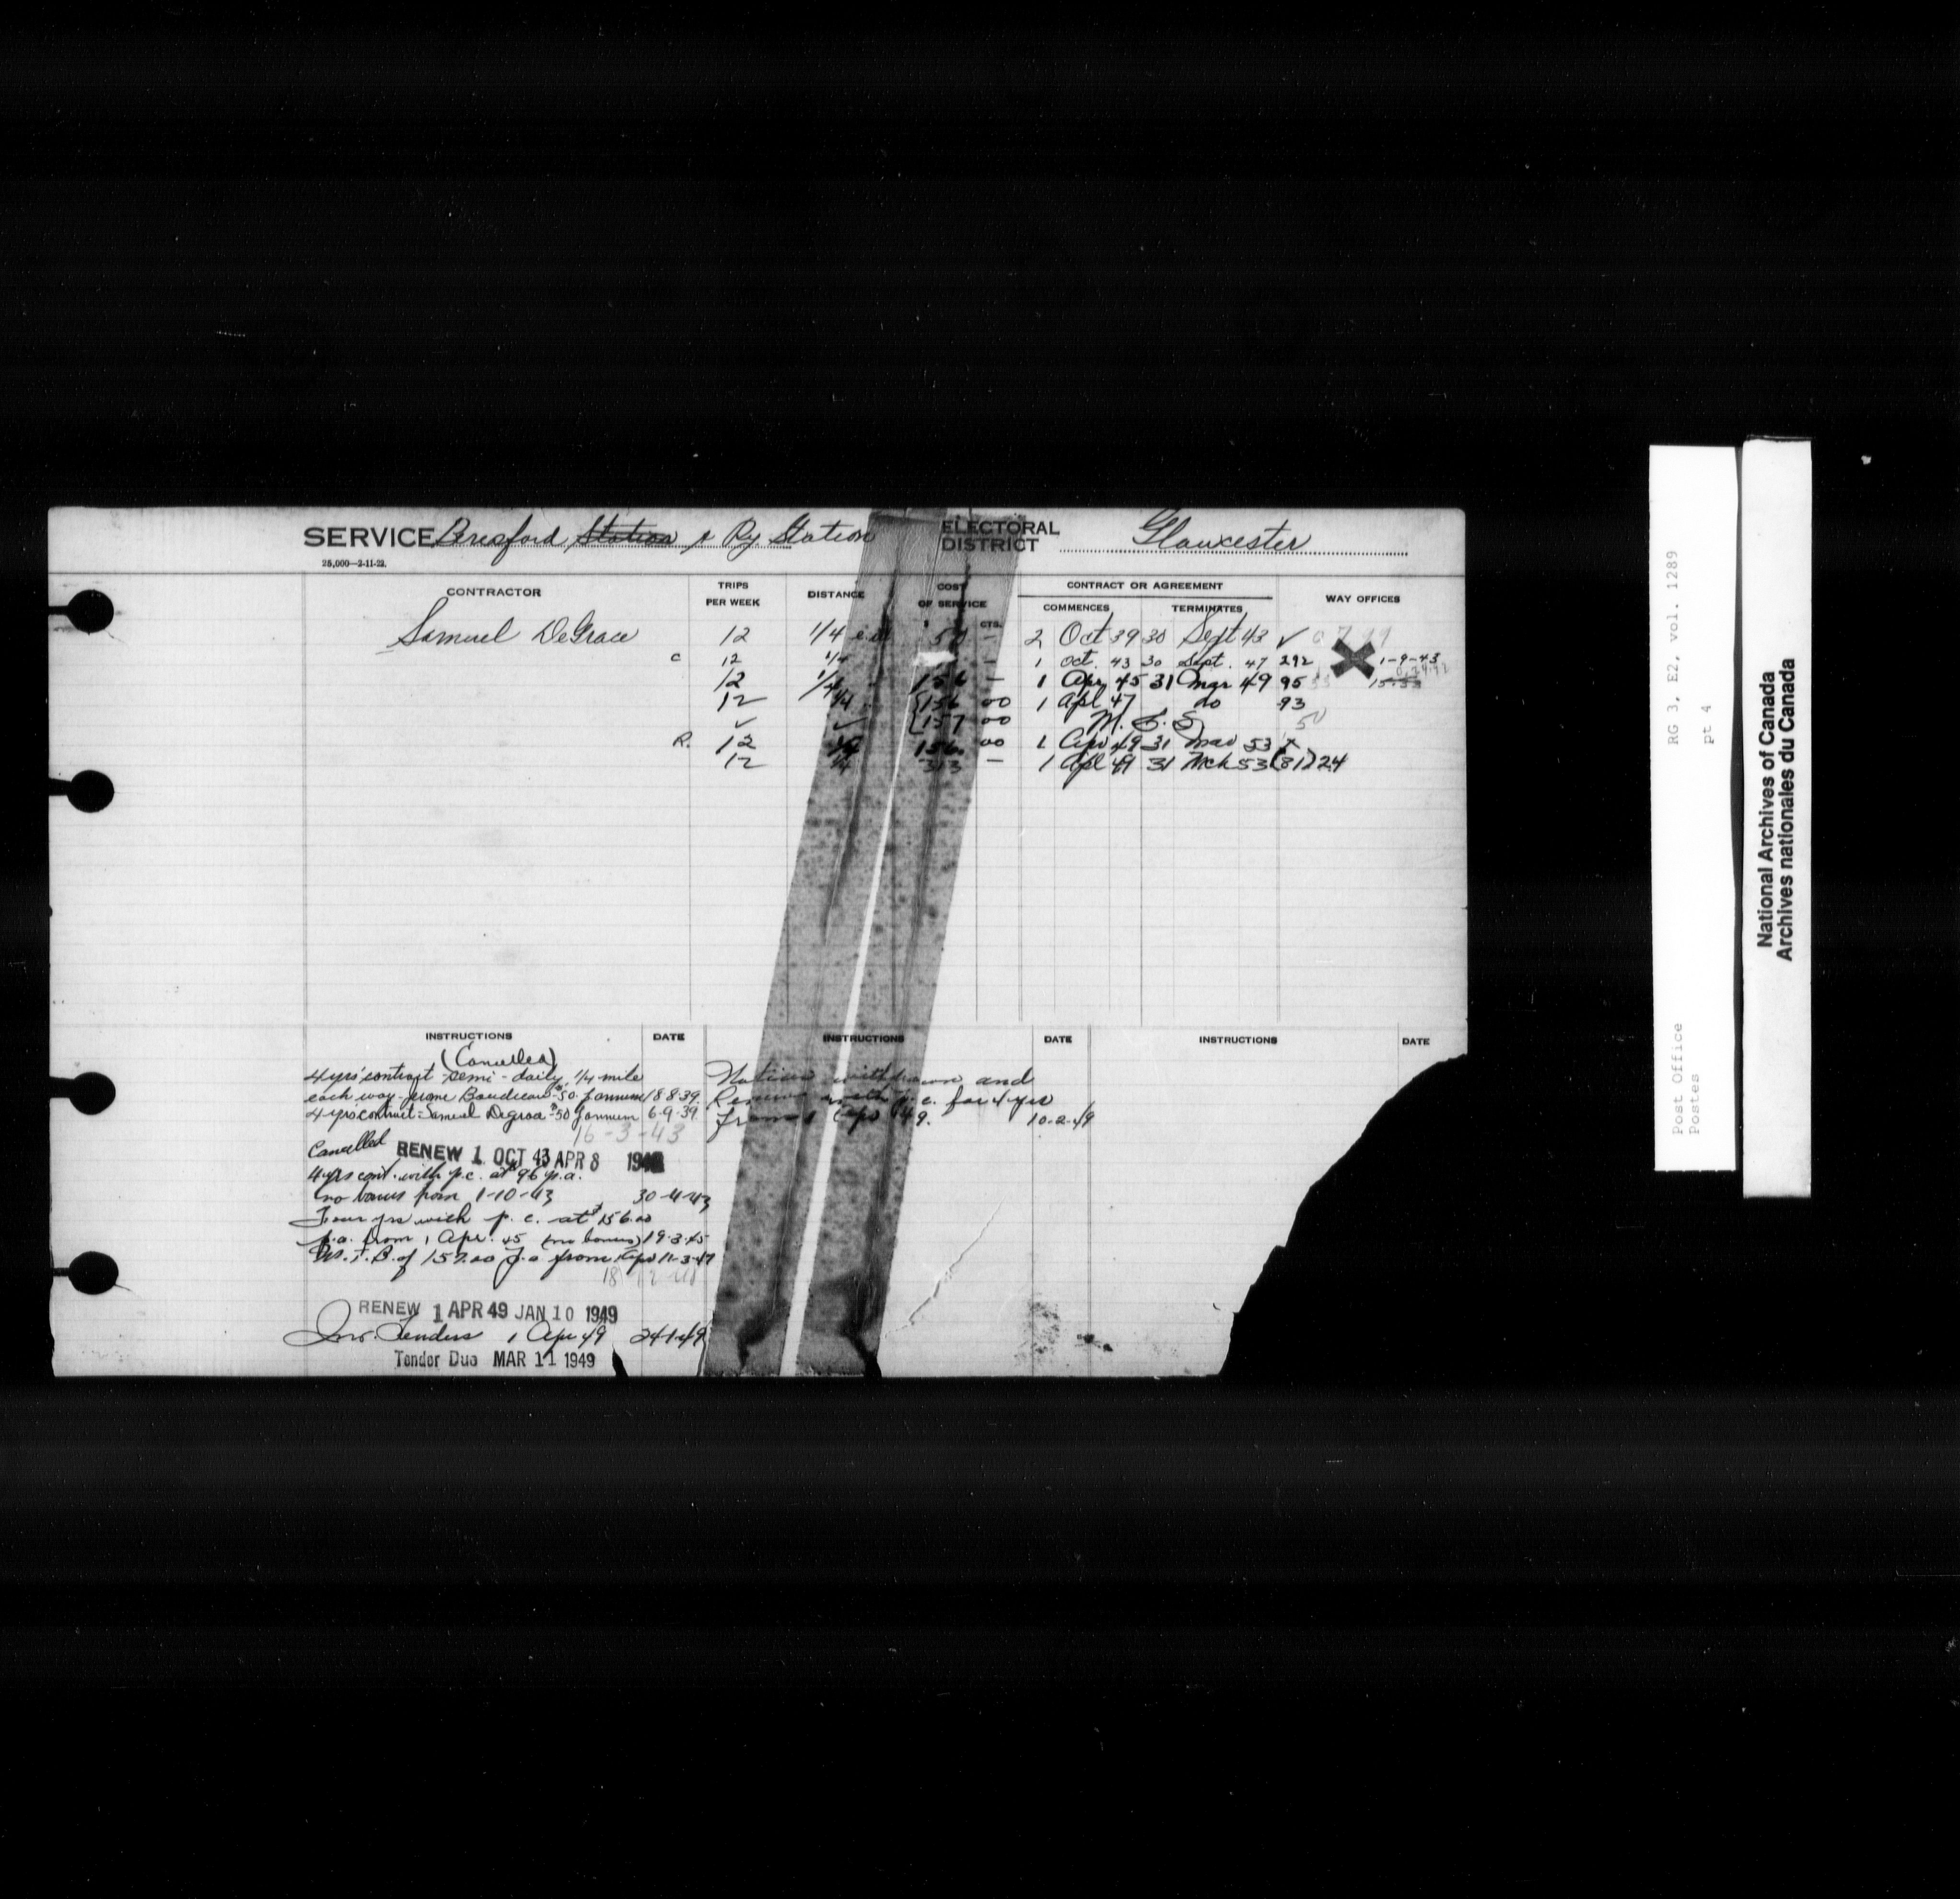 SERVICE Beresford Station & Ry. Station ELECTORAL DISTRICT Gloucester
25,000—2-11-22.
CONTRACTOR TRIPS PER WEEK DISTANCE COST OF SERVICE CONTRACT OR AGREEMENT WAY OFFICES
$ CTS. COMMENCES TERMINATES
Samuel DeGrace 12 1/4 50 — 2 Oct 39 30 Sept 43 ✓
C 12 1/4 — 1 Oct. 43 30 Sept. 47 292 X 1-9-43
12 1/4 156 — 1 Apr 45 31 Mar 49 95
12 1/4 156 00 1 Apl 47 do 93
✓ ✓ 157 00 50
R. 12 1/4 156. 00 1 Apr 49 31 Mar 53 x
12 1/4 313 — 1 Apl 49 31 Mch 53 (81) 24
INSTRUCTIONS DATE INSTRUCTIONS DATE INSTRUCTIONS DATE
(Cancelled)
4 yrs' contract - semi-daily, 1/4 mile
each way - $50. p annum 18-8-39.
4 yrs' contract - Samuel Degrace - $50 p annum 6-9-39.
16-3-43
Cancelled RENEW 1 OCT 43 APR 8
4 yrs cont. with p.c. at $96 p.a.
no bonus from 1-10-43 30-4-43
Four yrs with p.c. at $156.00
p.a. from 1 Apr. 45 (no bonus) 19-3-45
of 157.00 p.a from 1 Apr 11-3-47
RENEW 1 APR 49 JAN 10 1949
Inv. Tenders 1 Apr 49 24-1-49
Tender Due MAR 11 1949
Notices withdrawn and
Renew with p.c. for 4 yrs
from 1 Apr 49. 10-2-49
RG 3, E2, vol. 1289
pt 4
Post Office
Postes
National Archives of Canada
Archives nationales du Canada